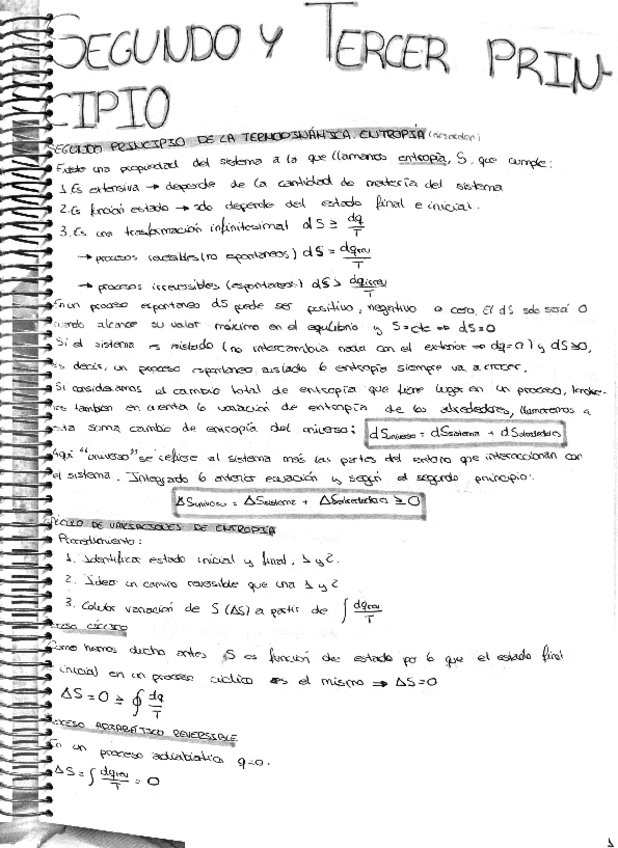 SEGUNDO Y TERCER PRIN-
CIPIO
SEGUNDO PRINCIPIO DE LA TERMODINÁMICA. ENTROPÍA
Existe una propiedad del sistema a la que llamamos entropía, S, que cumple:
1. Es extensiva → depende de la cantidad de materia del sistema
2. Es función estado → solo depende del estado final e inicial.
3. Es una trasformación infinitesimal dS ≥ dq/T
→ procesos reversibles (no espontaneos) dS = dqrev/T
→ procesos irreversibles (espontaneos) dS > dqirrev/T
En un proceso espontaneo dS puede ser positivo, negativo o cero. El dS solo será 0
cuando alcance su valor máximo en el equilibrio y S=cte ⇒ dS=0
Si el sistema es aislado (no intercambia nada con el exterior ⇒ dq=0) y dS≥0,
es decir, un proceso espontaneo aislado la entropía siempre va a crecer.
Si consideramos el cambio total de entropía que tiene lugar en un proceso,
también en cuenta la variación de entropía de los alrededores, llamaremos a
esta suma cambio de entropía del universo: dSuniverso = dSsistema + dSalrededores
Aquí "universo" se refiere al sistema más las partes del entorno que interaccionan con
el sistema. Integrado la anterior ecuación y según el segundo principio:
ΔSuniverso = ΔSsistema + ΔSalrededores ≥ 0
CÁLCULO DE VARIACIONES DE ENTROPIA
Procedimiento:
1. Identificar estado inicial y final, 1 y 2.
2. Idear un camino reversible que una 1 y 2
3. Calcular variación de S (ΔS) a partir de ∫ dqrev/T
PROCESO CÍCLICO
Como hemos dicho antes, S es función de estado por lo que el estado final
inicial en un proceso cíclico es el mismo ⇒ ΔS=0
ΔS = 0 ≥ ∮ dq/T
PROCESO ADIABÁTICO REVERSIBLE
En un proceso adiabático q=0.
ΔS = ∫ dqrev/T = 0
1